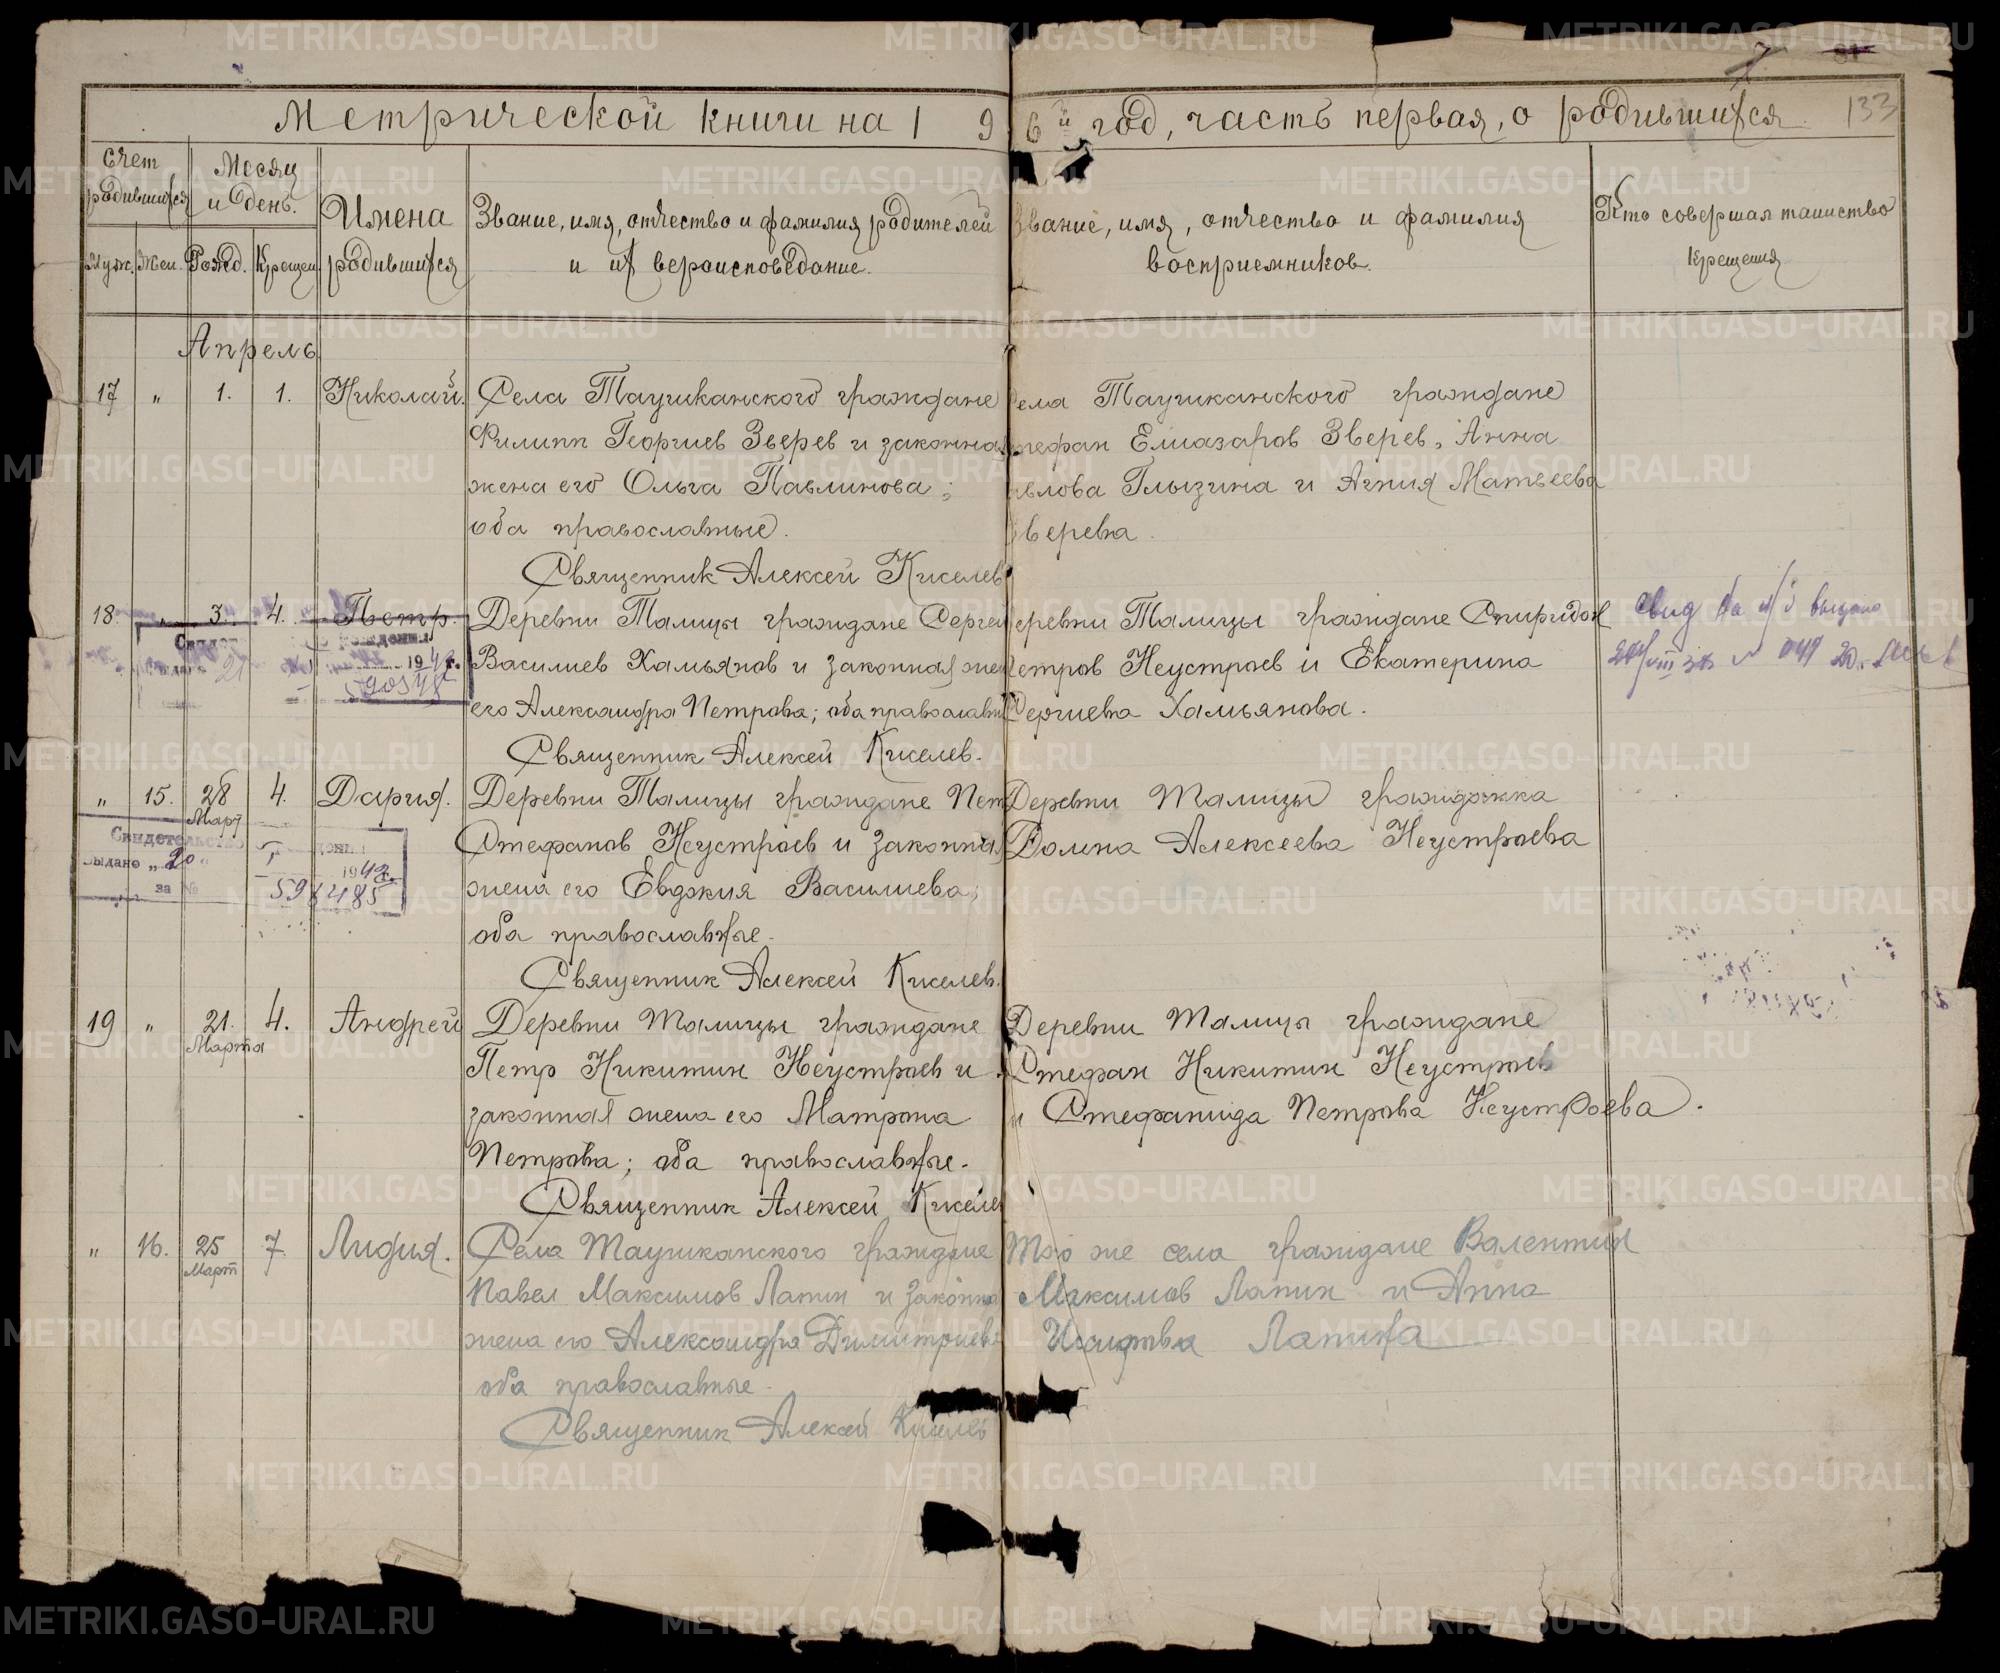 Метрической книги на 1 9 6й год, часть первая, о родившихся. 133
Счет родившихся
Месяц и день.
Имена родившихся
Звание, имя, отчество и фамилия родителей и их вероисповедание.
Звание, имя, отчество и фамилия восприемников.
Кто совершал таинство крещения
Муж. Жен. Рожд. Крещен.
Апрель
17 " 1. 1. Николай. Села Таушканского граждане
Филипп Георгиев Зверев и законная
жена его Ольга Павлинова;
оба православные.
Священник Алексей Киселев
Села Таушканского граждане
Стефан Елиазаров Зверев, Анна
Павлова Глызина и Агния Матвеева
Зверева.
18. " 3. 4. Петр. Деревни Талицы граждане Сергей
Василиев Хамьянов и законная жена
его Александра Петрова; оба православн
Священник Алексей Киселев.
Деревни Талицы граждане Спиридон
Петров Неустроев и Екатерина
Сергиева Хамьянова.
свид выдано
" 15. 28 Март 4. Дария. Деревни Талицы граждане Петр
Стефанов Неустроев и законная
жена его Евдокия Василиева;
оба православные.
Священник Алексей Киселев.
Деревни Талицы гражданка
Алексеева Неустроева
Свидетельство
выдано „20"
1942г.
за № 596485
19 " 21. Марта 4. Андрей Деревни Талицы граждане
Петр Никитин Неустроев и
законная жена его Матрона
Петрова; оба православные.
Священник Алексей Киселев
Деревни Талицы граждане
Стефан Никитин Неустроев
и Стефанида Петрова Неустроева.
" 16. 25 Март 7. Лидия. Села Таушканского граждане
Павел Максимов Лапин и законна
жена его Александра Димитриева
оба православные.
Священник Алексей Киселев
Того же села граждане Валентин
Максимов Лапин и Анна
Лапина
METRIKI.GASO-URAL.RU